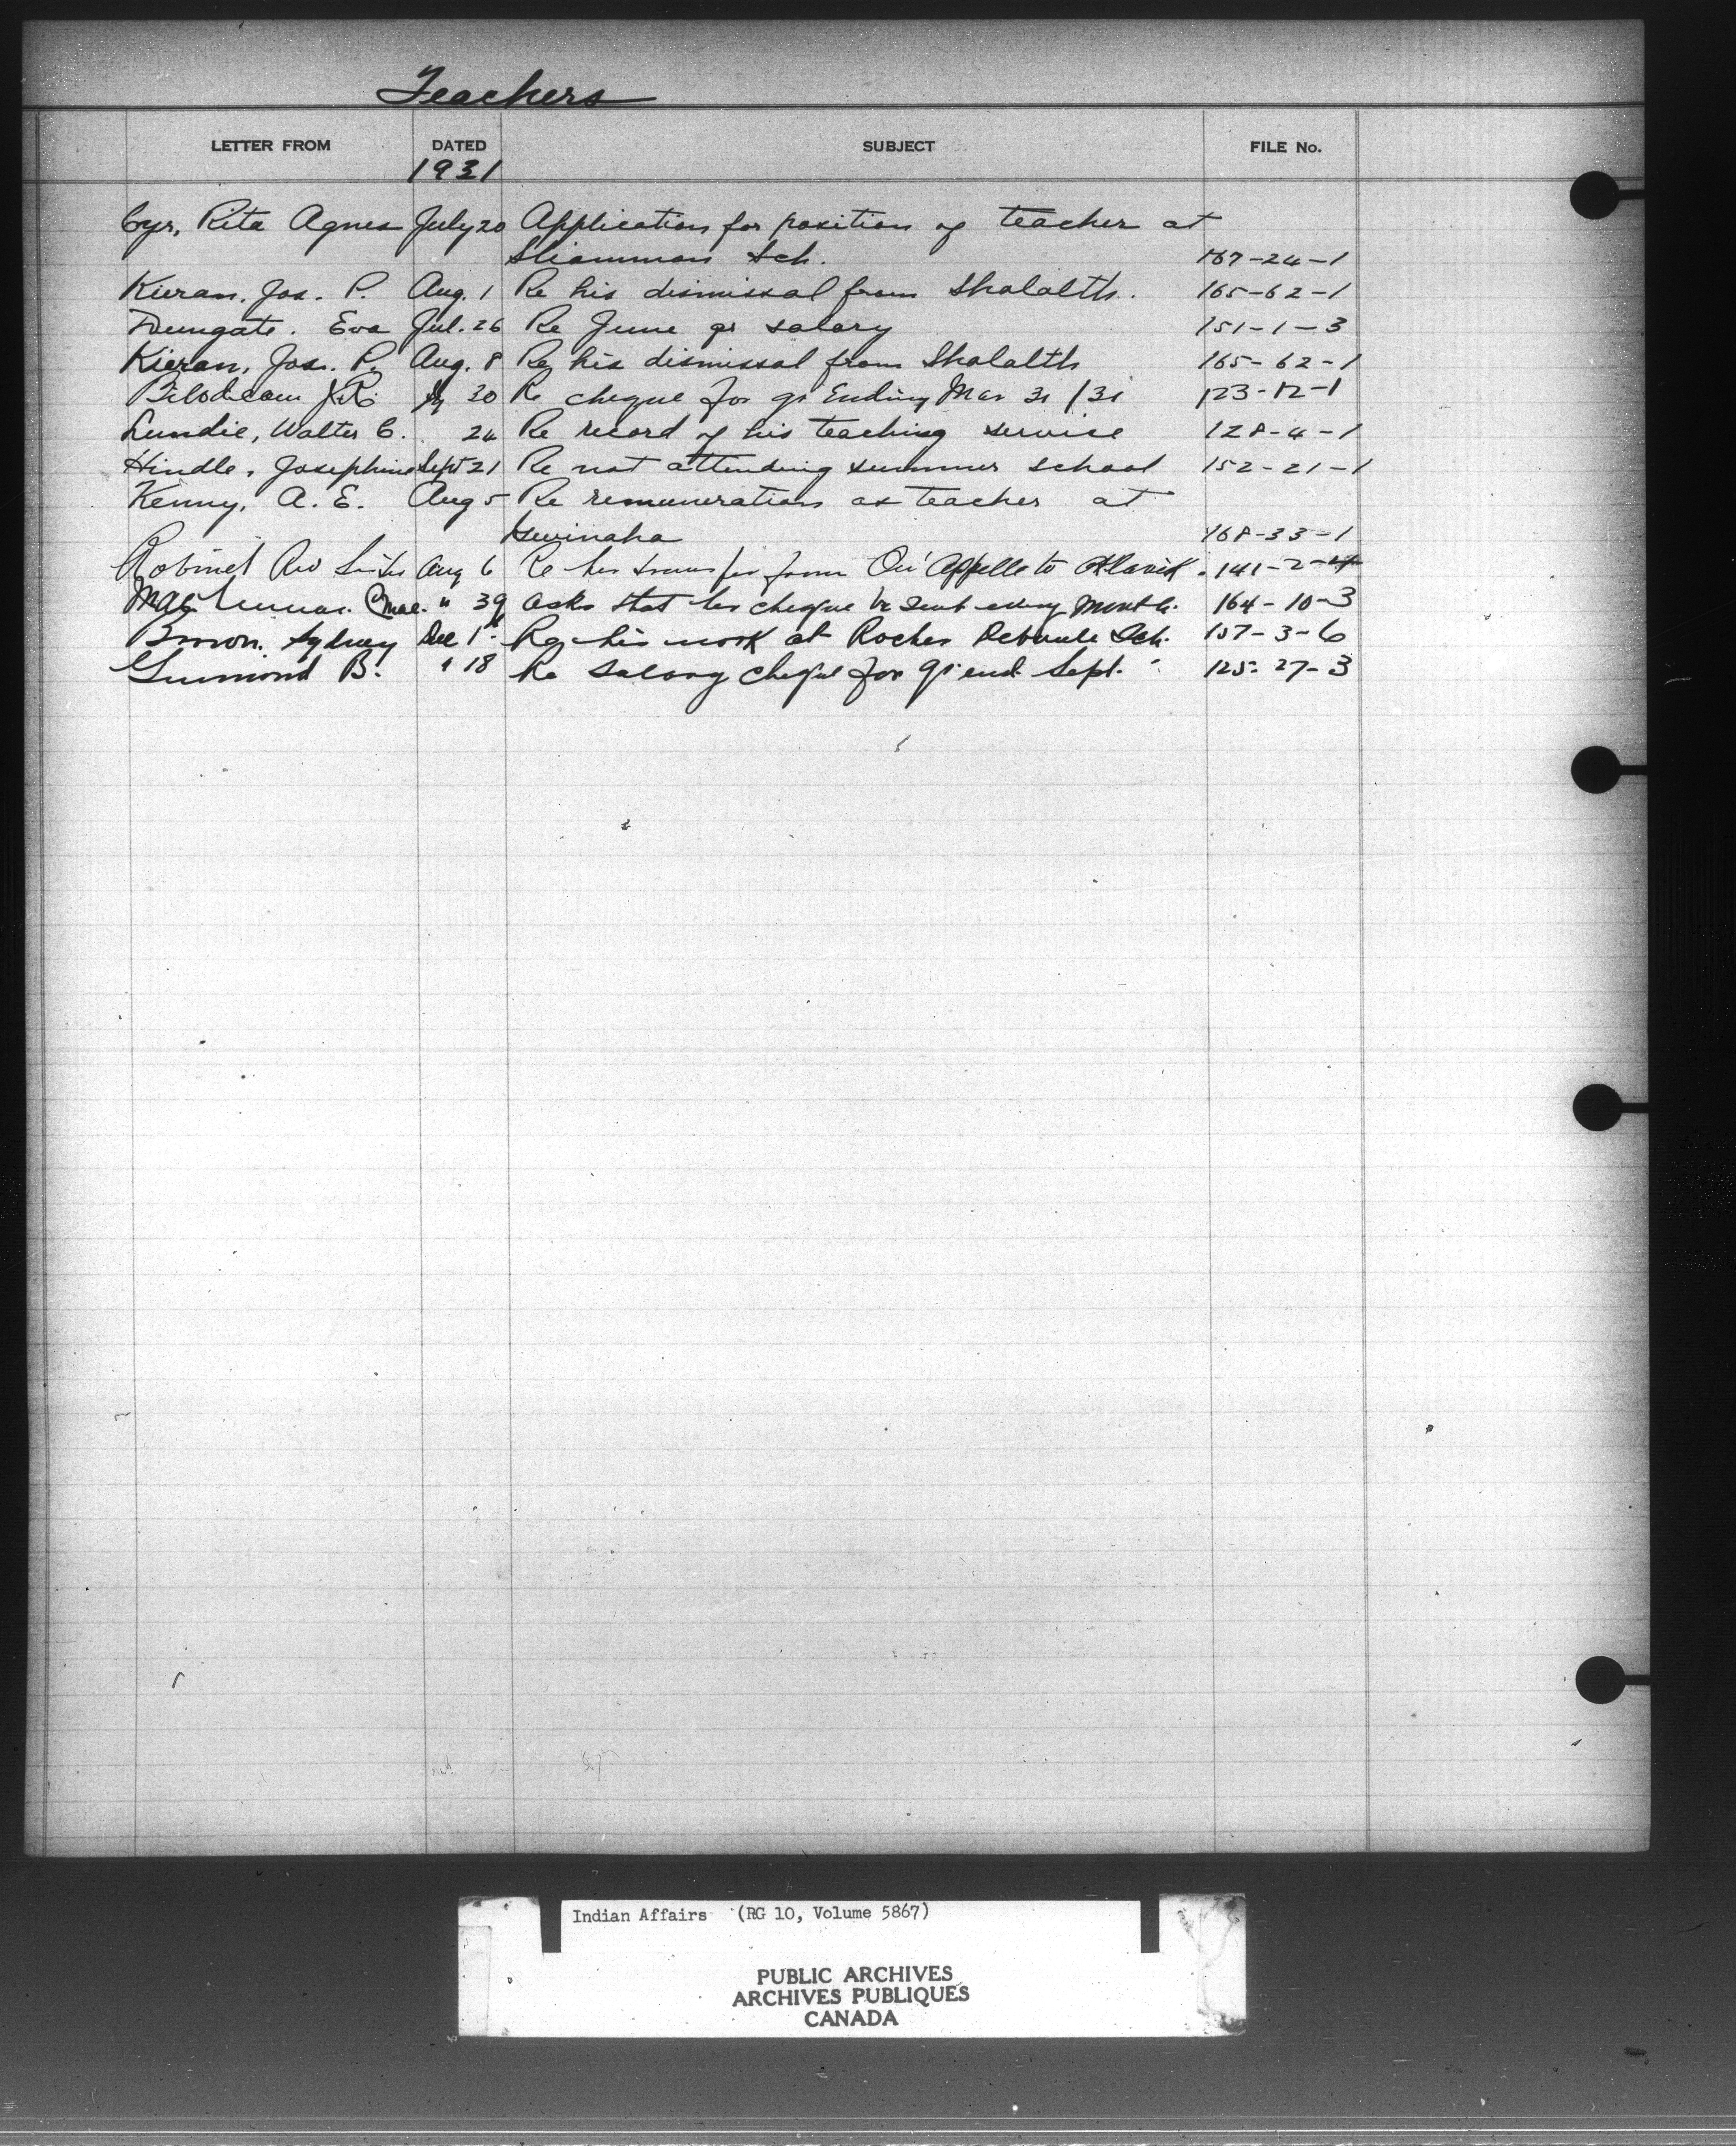 Teachers
LETTER FROM DATED SUBJECT FILE No.
1931
Cyr, Rita Agnes July 20 Application for position of teacher at
Sliammon Sch. 167-24-1
Kieran, Jos. P. Aug. 1 Re his dismissal from Shalalth. 165-62-1
Dungate. Eva Jul. 26 Re June qr salary 151-1-3
Kieran, Jos. P. Aug. 8 Re his dismissal from Shalalth 165-62-1
Bilodeau J.R. 20 Re cheque for qr Ending Mar 31/31 123-12-1
Lundie, Walter C. 24 Re record of his teaching service 128-4-1
Hindle, Josephine Sept 21 Re not attending summer school 152-21-1
Kenny, A. E. Aug 5 Re remuneration as teacher at
168-33-1
Robinet Rev Sister Aug 6 Re her transfer from Qu'Appelle to Aklavik. 141-2-4
" 39 asks that her cheque be sent every month. 164-10-3
Brown. Sydney Dec 1st Re his work at Rocher Deboule Sch. 157-3-6
B. " 18 Re salary cheque for qr end Sept. 125-27-3
Indian Affairs (RG 10, Volume 5867)
PUBLIC ARCHIVES
ARCHIVES PUBLIQUES
CANADA